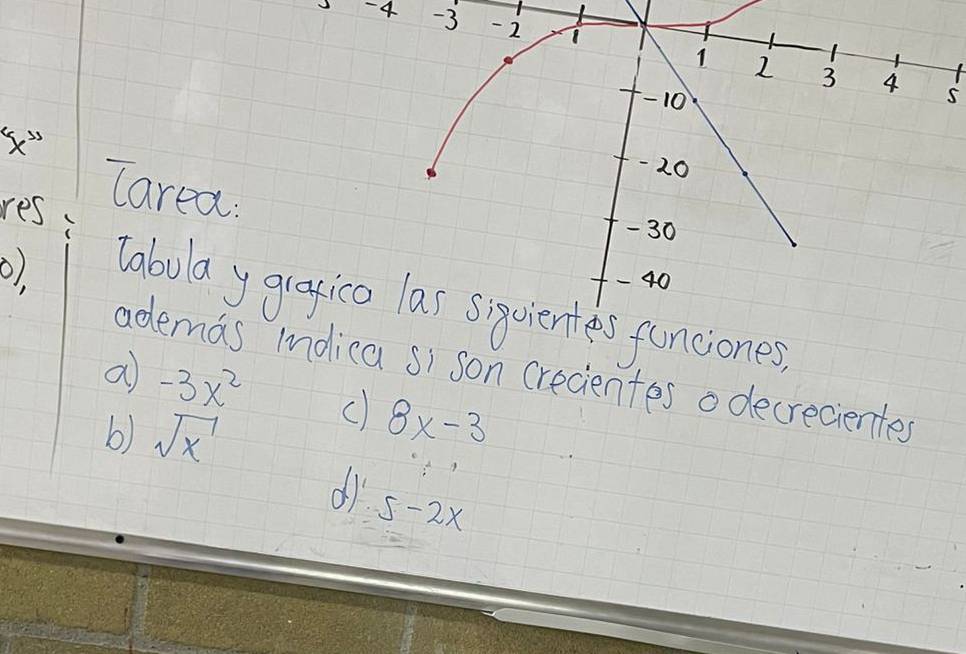 -4 -3 -2 -1 1 2 3 4 5
-10
-20
-30
-40
"x"
Tarea:
Tabula y grafica las siguientes funciones,
además indica si son crecientes o decrecientes
a) -3x²
b) √x
c) 8x-3
d) 5-2x